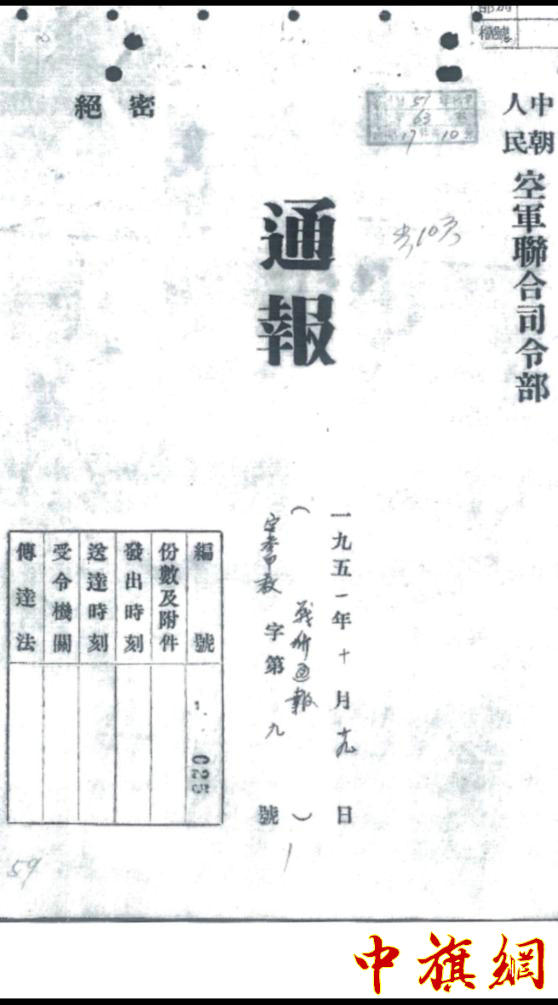 號
絕密
中朝
人民
空軍聯合司令部
57
63
17 10
共10页
通報
一九五一年十月十九日
(戰術通報)
字第九號
編號
025
份數及附件
發出時刻
送達時刻
受令機關
傳達法
59
中旗網